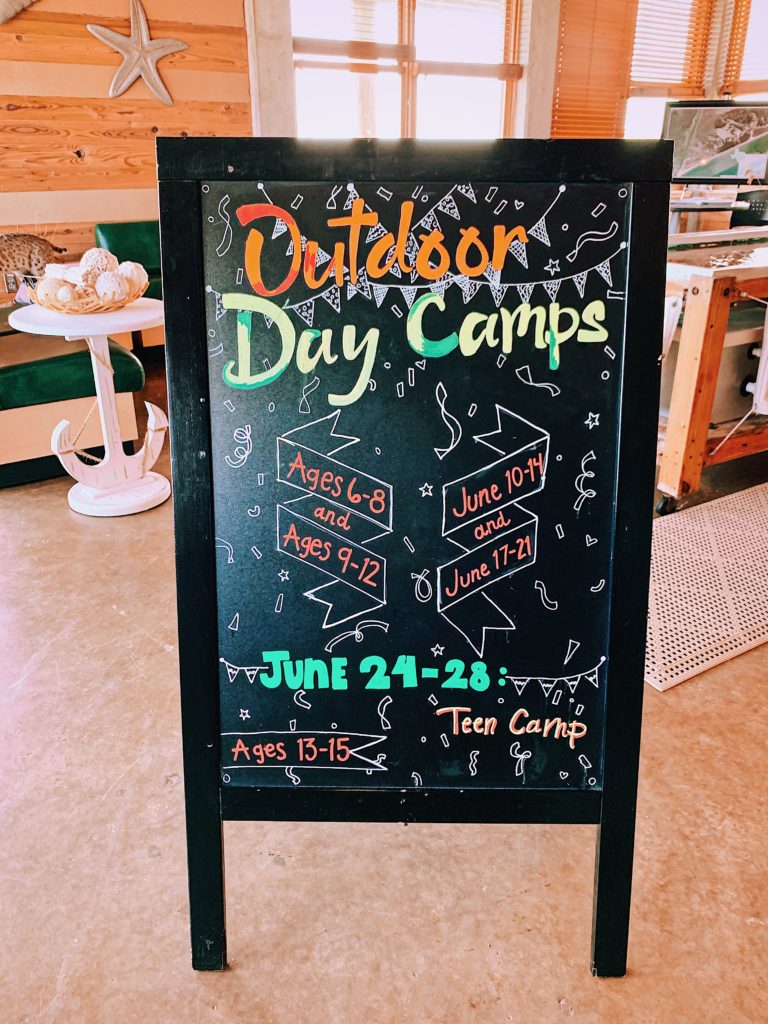 Outdoor
Day Camps
Ages 6-8
and
Ages 9-12
June 10-14
and
June 17-21
JUNE 24-28:
Teen Camp
Ages 13-15